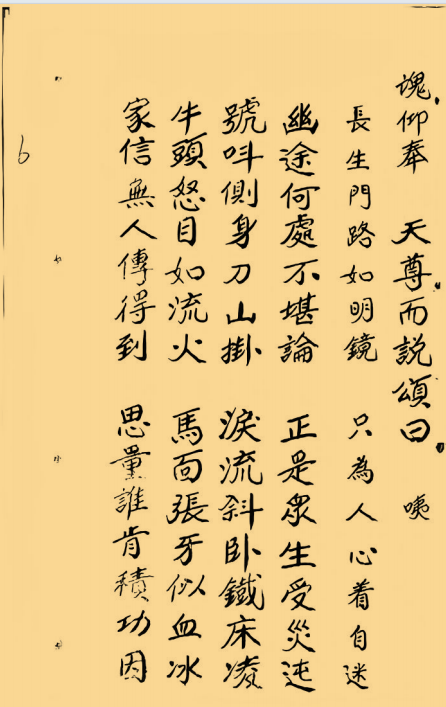 魂仰奉 天尊而説頌曰 咦
長生門路如明鏡 只為人心着自迷
幽途何處不堪論 正是眾生受災迍
號呌側身刀山掛 淚流斜卧鐵床凌
牛頭怒目如流火 馬面張牙似血冰
家信無人傳得到 思量誰肯積功因
6